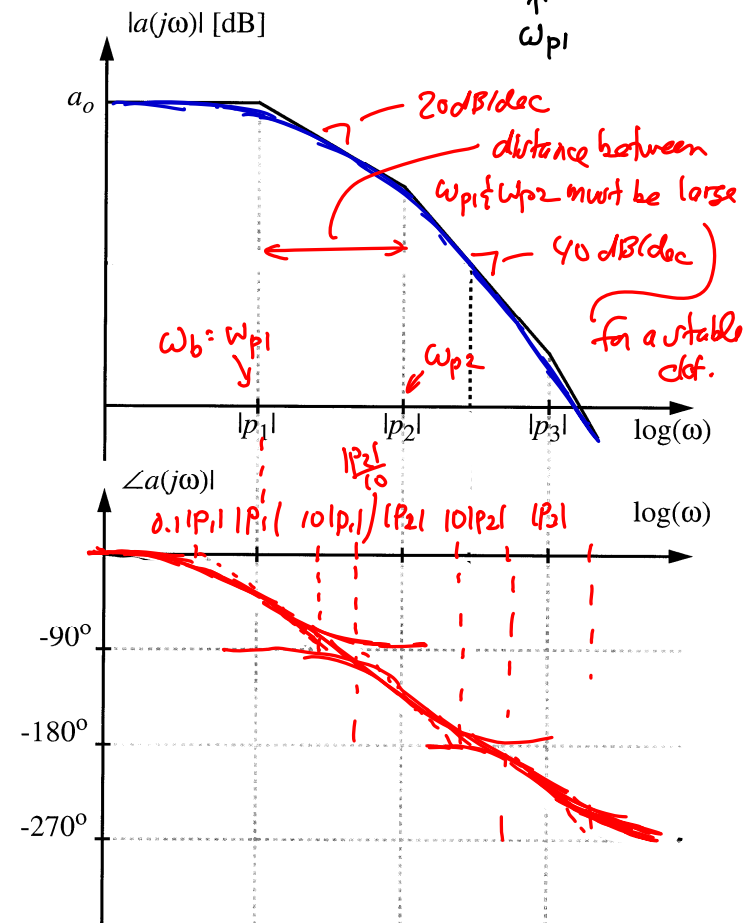 |a(jω)| [dB]
↑
ωp1
a₀
20dB/dec
distance between
ωp1 & ωp2 must be large
40 dB/dec
for a stable
ωb = ωp1
ωp2
|p₁|
|p₂|
|p₃|
log(ω)
|p2|/10
∠a(jω)|
log(ω)
0.1|p1| |p1| 10|p1| |p2| 10|p2| |p3|
-90°
-180°
-270°